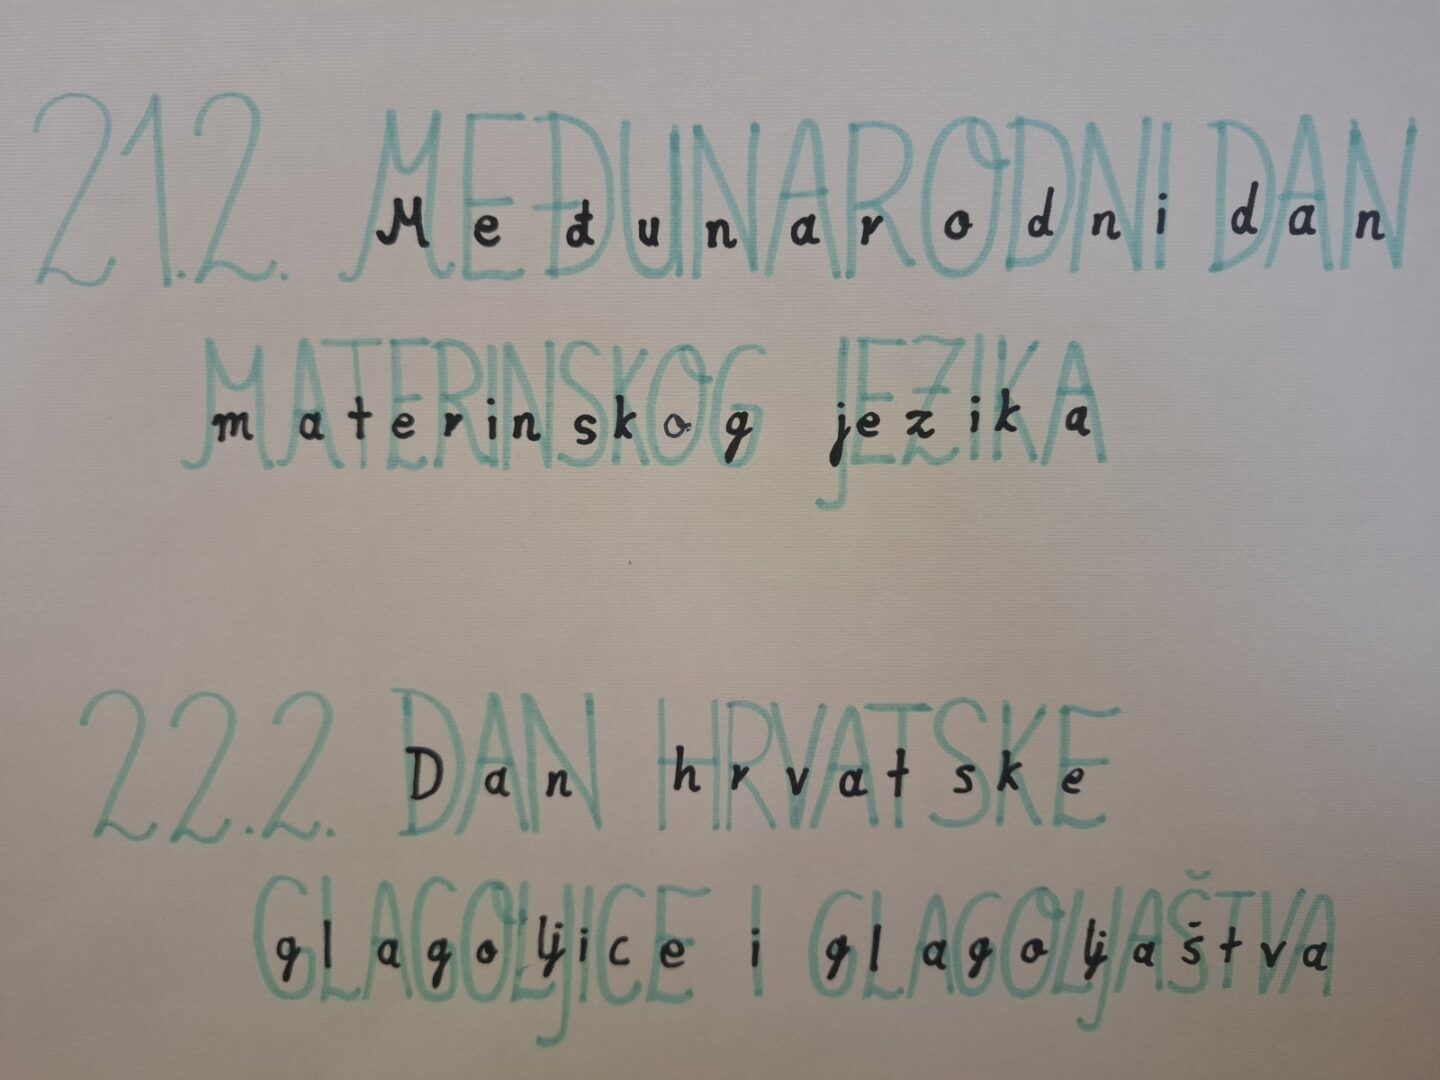 21.2. MEĐUNARODNI DAN
Međunarodni dan
MATERINSKOG JEZIKA
materinskog jezika
22.2. DAN HRVATSKE
Dan hrvatske
GLAGOLJICE I GLAGOLJAŠTVA
glagoljice i glagoljaštva